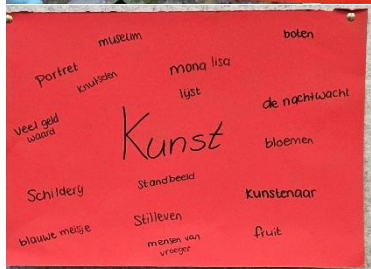 museum
boten
portret
knutselen
mona lisa
lijst
de nachtwacht
veel geld
waard
Kunst
bloemen
Schilderij
Standbeeld
Kunstenaar
Stilleven
blauwe meisje
mensen van
vroeger
fruit